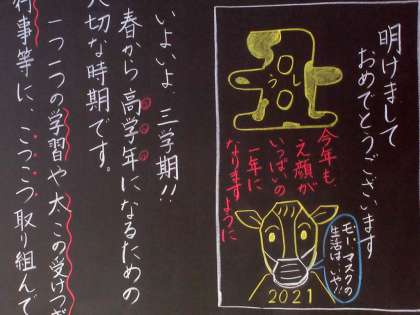 明けまして
おめでとうございます
うし
今年も
笑顔が
いっぱいの
一年に
なりますように
モー、マスクの
生活はいや!!
2021
いよいよ、三学期!!
春から高学年になるための
大切な時期です。
一つ一つの学習や太この受けつぎ
行事等に、こつこつ取り組んで